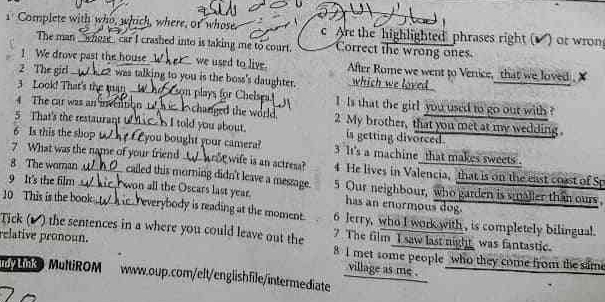 1 Complete with who, which, where, or whose.
The man whose car I crashed into is taking me to court.
1 We drove past the house where we used to live.
2 The girl who was talking to you is the boss's daughter.
3 Look! That's the man son plays for Chelsea!
4 The car was an invention which changed the world.
5 That's the restaurant which I told you about.
6 Is this the shop where you bought your camera?
7 What was the name of your friend whose wife is an actress?
8 The woman who called this morning didn't leave a message.
9 It's the film which won all the Oscars last year.
10 This is the book which everybody is reading at the moment.
Tick (✓) the sentences in a where you could leave out the
relative pronoun.
udy Link MultiROM www.oup.com/elt/englishfile/intermediate
c Are the highlighted phrases right (✓) or wron
Correct the wrong ones.
After Rome we went to Venice, that we loved. ✗
which we loved
1 Is that the girl you used to go out with?
2 My brother, that you met at my wedding,
is getting divorced.
3 It's a machine that makes sweets.
4 He lives in Valencia, that is on the east coast of Sp
5 Our neighbour, who garden is smaller than ours,
has an enormous dog.
6 Jerry, who I work with, is completely bilingual.
7 The film I saw last night was fantastic.
8 I met some people who they come from the same
village as me.